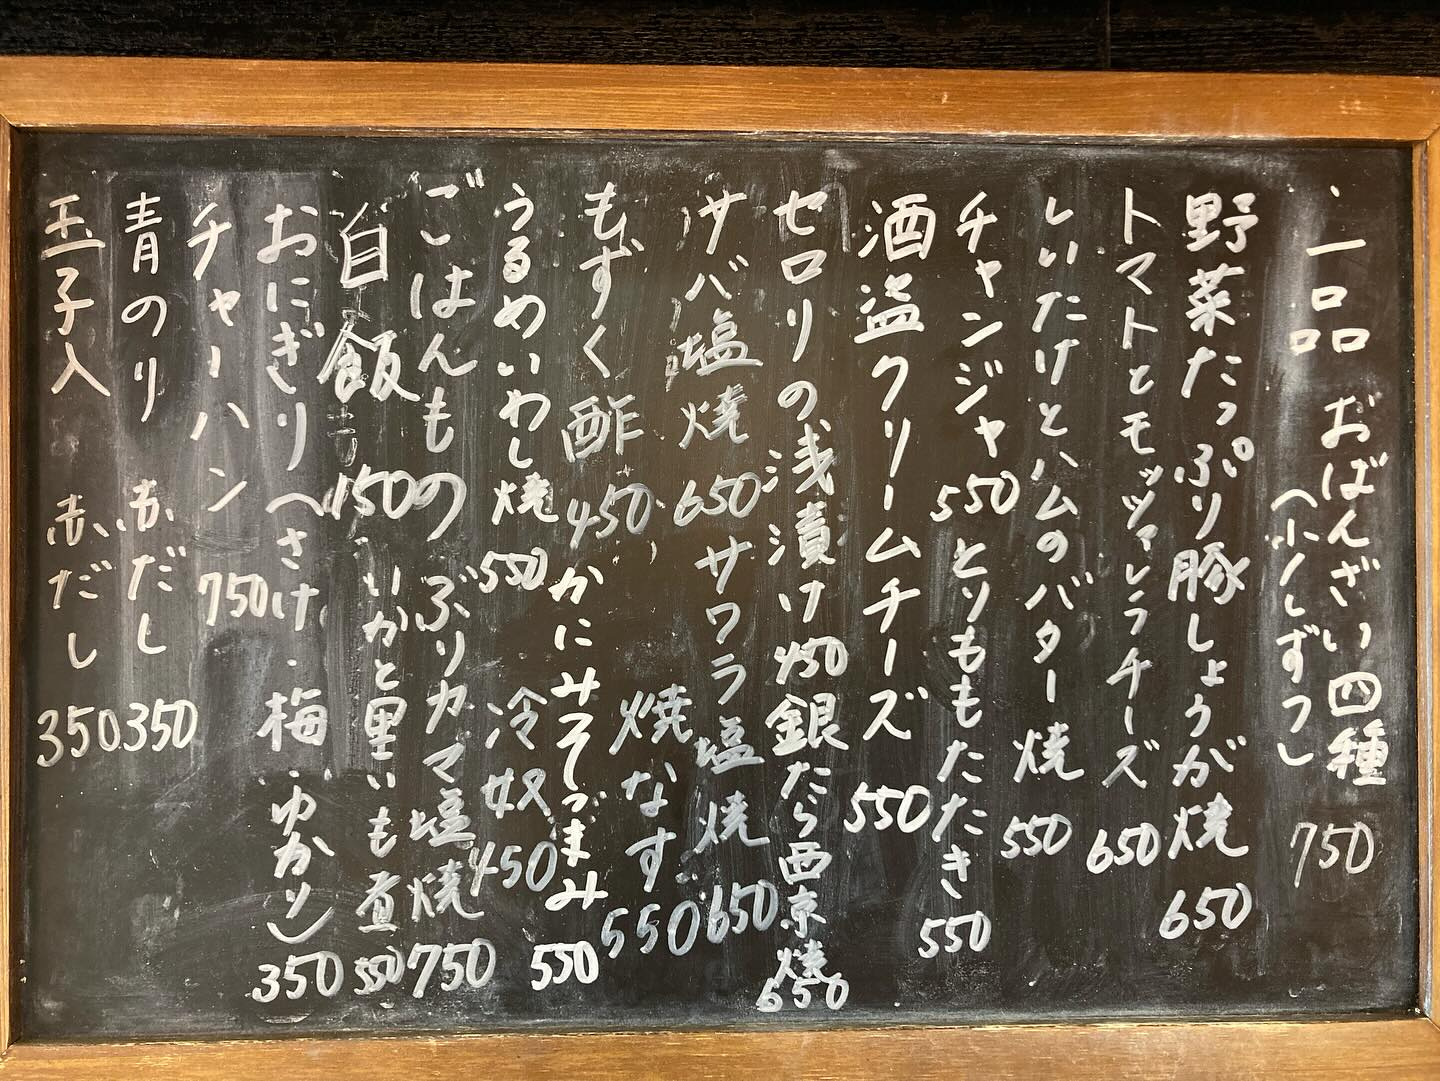 一品 おばんざい四種 750
(少しずつ)
野菜たっぷり豚しょうが焼 650
トマトとモッツァレラチーズ 650
しいたけとハムのバター焼 550
チャンジャ 550 とりももたたき 550
酒盗クリームチーズ 550
セロリの浅漬け 450 銀たら西京焼 650
サバ塩焼 650 サワラ塩焼 650
焼なす 550
もずく酢 450 かにみそごまみ 550
うるめいわし焼 550 冷奴 450
ごはんもの ぶりカマ塩焼 750
白飯 150 いかと里いも煮 550
おにぎり(さけ・梅・ゆかり) 350
チャーハン 750
青のり 赤だし 350
玉子入 赤だし 350